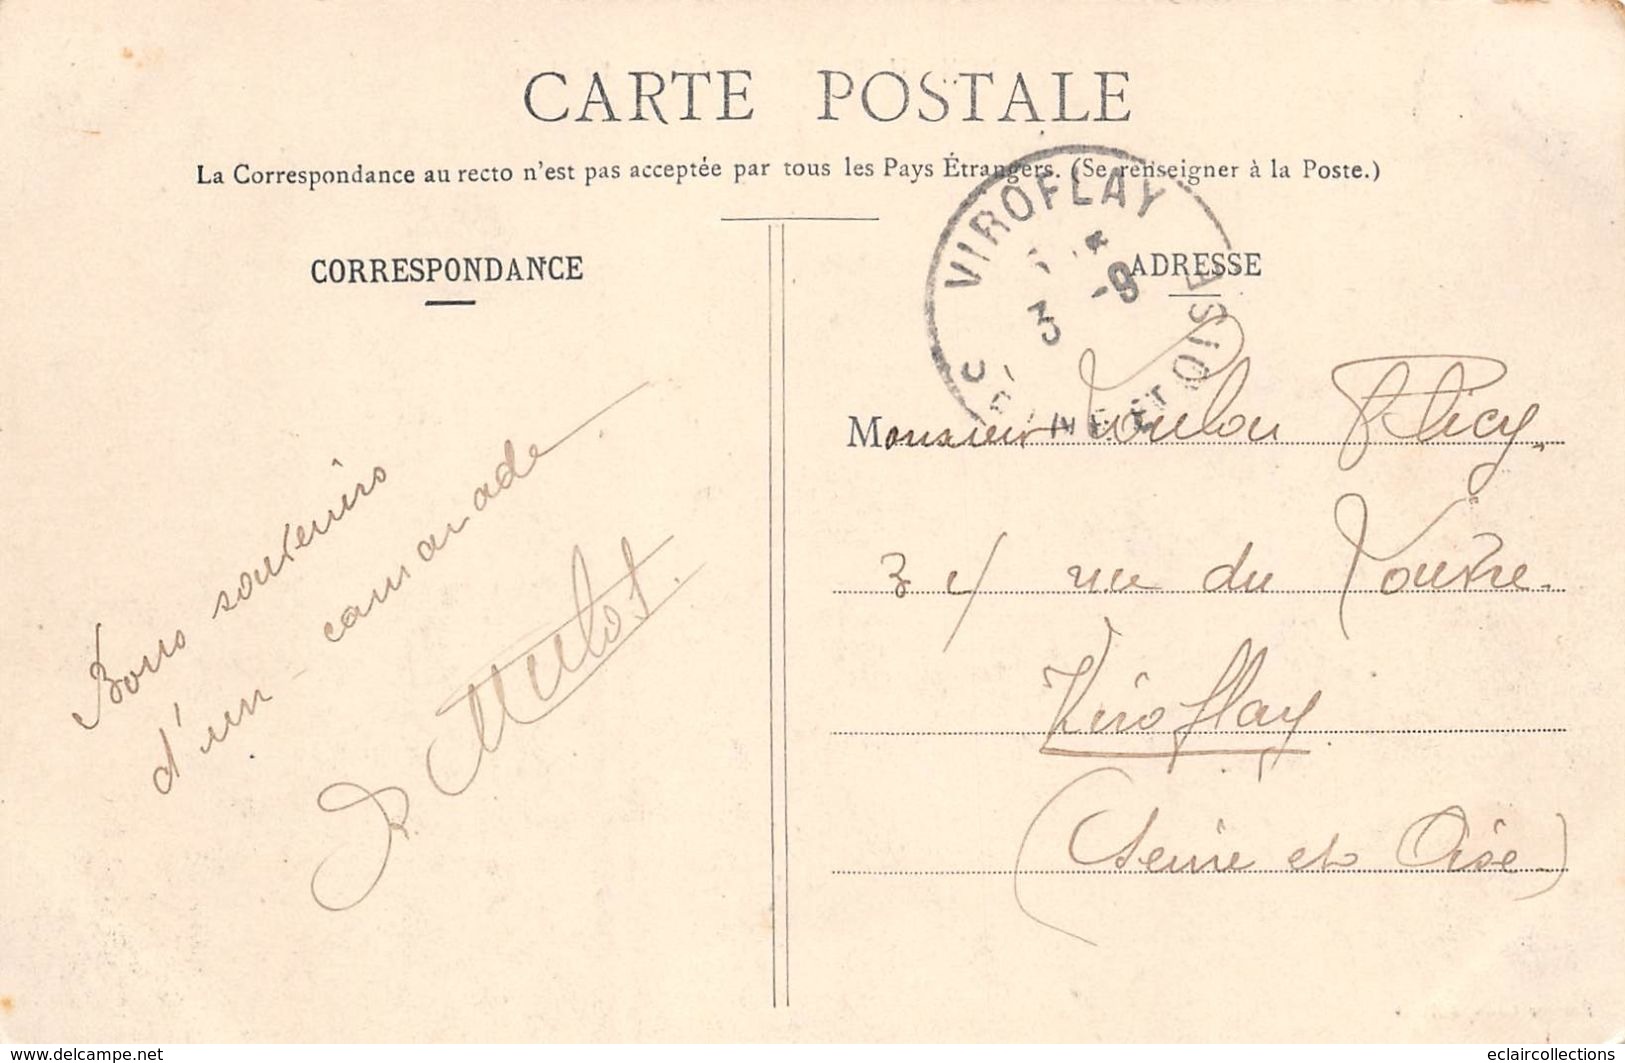 CARTE POSTALE
La Correspondance au recto n'est pas acceptée par tous les Pays Étrangers. (Se renseigner à la Poste.)
CORRESPONDANCE
ADRESSE
VIROFLAY
3 -9
SEINE ET OISE
Bons souvenirs
d'un camarade
Mulot
Monsieur Toulou
rue du
Viroflay
(Seine et Oise)
www.delcampe.net
eclaircollections